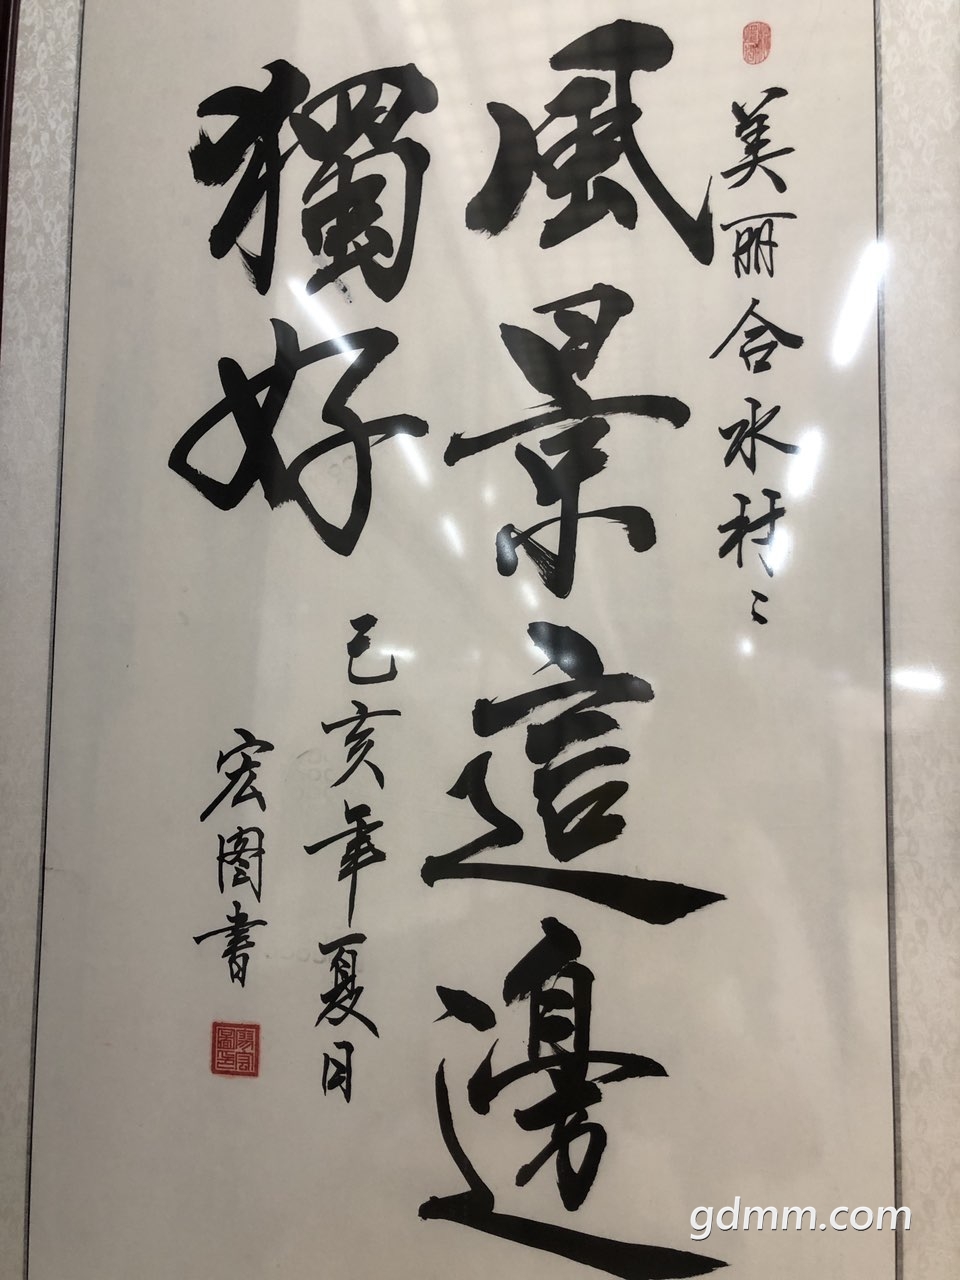 美丽合水村〻
風景這邊
獨好
己亥年夏月
宏图書
gdmm.com